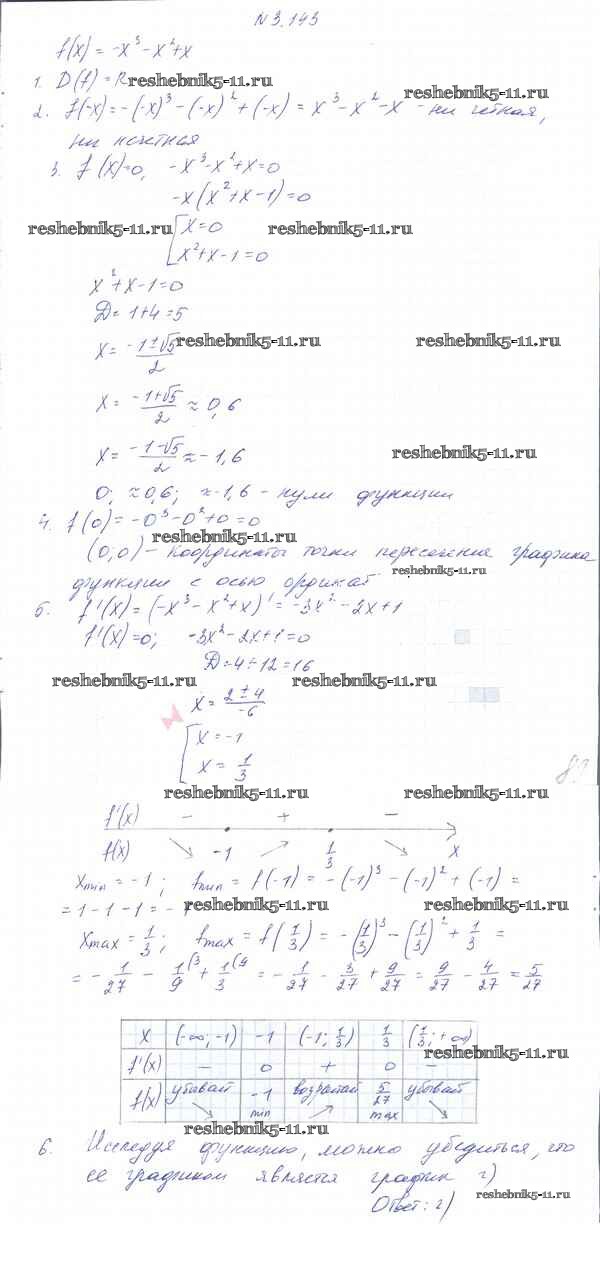 N 3.143
f(x) = -x³ - x² + x
1. D(f) = R reshebnik5-11.ru
reshebnik5-11.ru
2. f(-x) = -(-x)³ - (-x)² + (-x) = x³ - x² - x - ни четная,
ни нечетная
3. f(x)=0, -x³-x²+x=0
-x(x²+x-1)=0
reshebnik5-11.ru [x=0 reshebnik5-11.ru
x²+x-1=0
x²+x-1=0
D = 1+4=5
x = (-1±√5)/2 reshebnik5-11.ru reshebnik5-11.ru
x = (-1+√5)/2 ≈ 0,6
x = (-1-√5)/2 ≈ -1,6 reshebnik5-11.ru
0; ≈0,6; ≈-1,6 - нули функции
4. f(0) = -0³-0²+0=0
(0,0) - координаты точки пересечения графика
функции с осью ординат reshebnik5-11.ru
5. f'(x) = (-x³-x²+x)' = -3x²-2x+1
f'(x)=0; -3x²-2x+1=0
D=4+12=16
reshebnik5-11.ru reshebnik5-11.ru
x = (2±4)/-6
[x=-1
x = 1/3
reshebnik5-11.ru reshebnik5-11.ru
f'(x) - + -
f(x) ↘ -1 ↗ 1/3 ↘ x
xmin = -1; fmin = f(-1) = -(-1)³ - (-1)² + (-1) =
= 1-1-1 = - reshebnik5-11.ru reshebnik5-11.ru
xmax = 1/3; fmax = f(1/3) = -(1/3)³ - (1/3)² + 1/3 =
= -1/27 - 1/9 (3 + 1/3 (9 = -1/27 - 3/27 + 9/27 = 9/27 - 4/27 = 5/27
x (-∞; -1) -1 (-1; 1/3) 1/3 (1/3; +∞)
reshebnik5-11.ru
f'(x) - 0 + 0 -
f(x) убывает ↘ -1 min возрастает ↗ 5/27 max убывает ↘
reshebnik5-11.ru
6. Исследуя функцию, можно убедиться, что
ее графиком является график г)
reshebnik5-11.ru
Ответ: г)